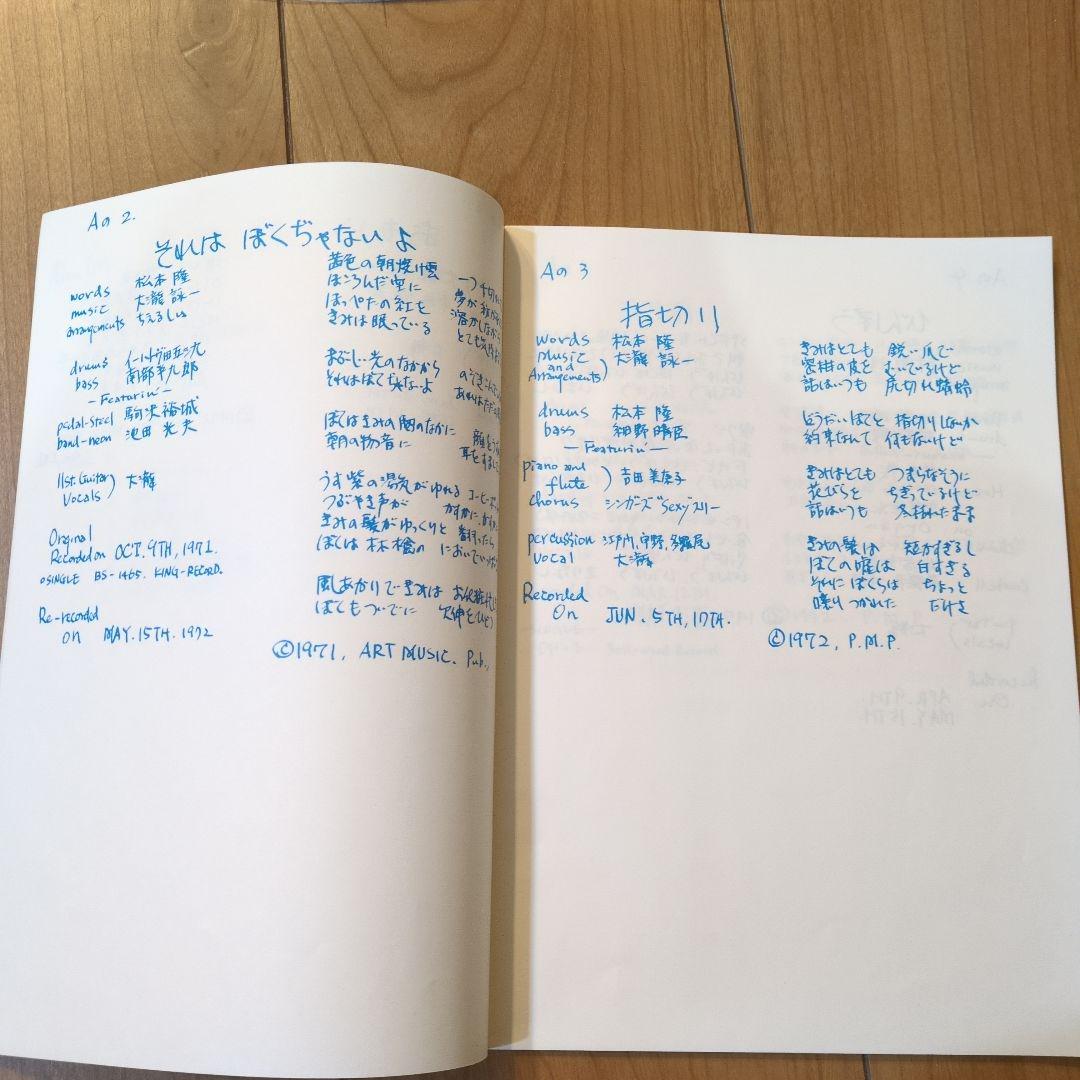 Aの2.
それは ぼくぢゃないよ
words 松本 隆
music 大瀧 詠一
arrangements ちぇるしぃ
drums
bass 南部半九郎
—Featurin'—
pedal-steel 駒沢裕城
band-neon 池田光夫
11st.(guitar)
Vocals) 大瀧
Orginal
Recorded on OCT.9TH,1971.
○SINGLE BS-1465. KING-RECORD.
Re-recorded
on MAY.15TH.1972
茜色の朝焼け雲 一つ千切
ほころんだ空に 夢が
ほっぺたの紅を 溶かしながら
きみは眠っている とても
まぶしい光のなかから のぞきこんで
それはぼくぢゃないよ あれはただの
ぼくはきみの闇のなかに 顔を
朝の物音に 耳をすまし
うす紫の湯気がゆれる コーヒー
つぶやき声が かすかに
きみの髪がゆっくりと
ぼくは木橋の においで
風あかりできみは お化粧
ぼくもついでに 欠伸をひとつ
©1971, ART MUSIC. Pub.,
Aの3
指切り
words 松本 隆
Music
and
Arrangements) 大瀧 詠一
drums 松本 隆
bass 細野晴臣
—Featurin'—
piano and
flute) 吉田美奈子
chorus シンガーズSexyスリー
percussion 江戸門,宇野,多羅尾
vocal 大瀧
Recorded
On JUN.5TH,17TH.
きみはとても 鋭い爪で
蜜柑の皮を むいているけど
話はいつも 尻切れ蜻蛉
どうだいぼくと 指切りしないか
約束なんて 何もないけど
きみはとても つまらなそうに
花びらを ちぎっているけど
話はいつも 冬枯れたまま
きみの髪は 短かすぎるし
ぼくの嘘は 白すぎる
それにぼくらは ちょっと
喋り つかれた だけさ
©1972, P.M.P.